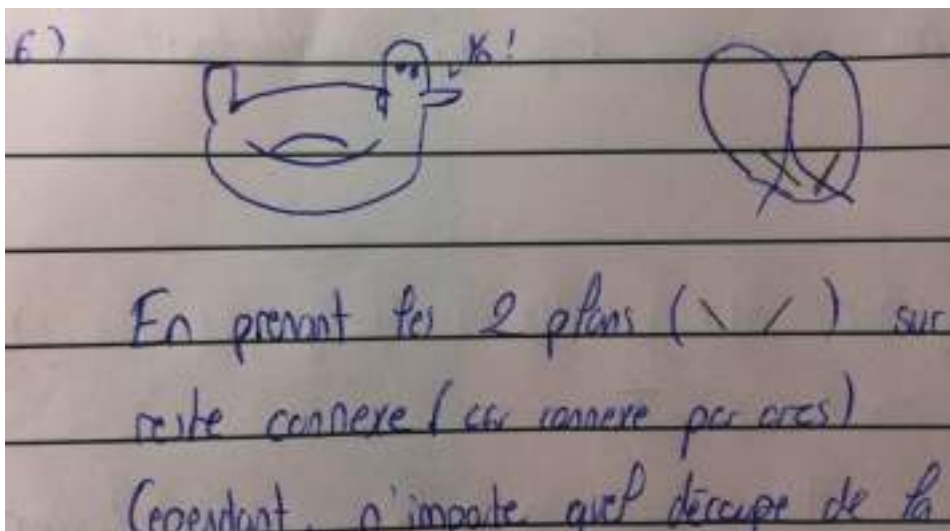 6)
Yo !
En prenant les 2 plans ( \ / ) sur
reste connexe ( car connexe par arcs )
Cependant, n'importe quel découpe de la